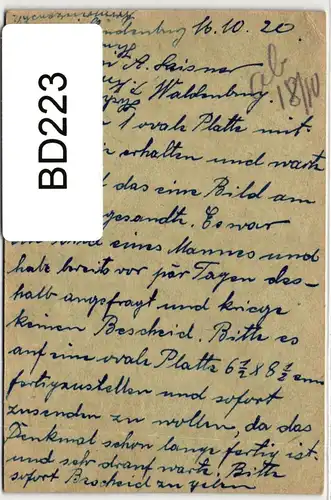 16.10.20.
A. Laisner
Waldenburg.
ab
18/10
BD223
1 ovale Platte mit
erhalten und warte
das eine Bild am
gesandte. Es war
eines Mannes und
habe bereits vor par Tagen des-
halb angefragt und kriege
keinen Bescheid. Bitte es
auf eine ovale Platte 6½x8½ cm
fertigzustellen und sofort
zusenden zu wollen, da das
Denkmal schon lange fertig ist
und sehr drauf warte. Bitte
sofort Bescheid zu geben